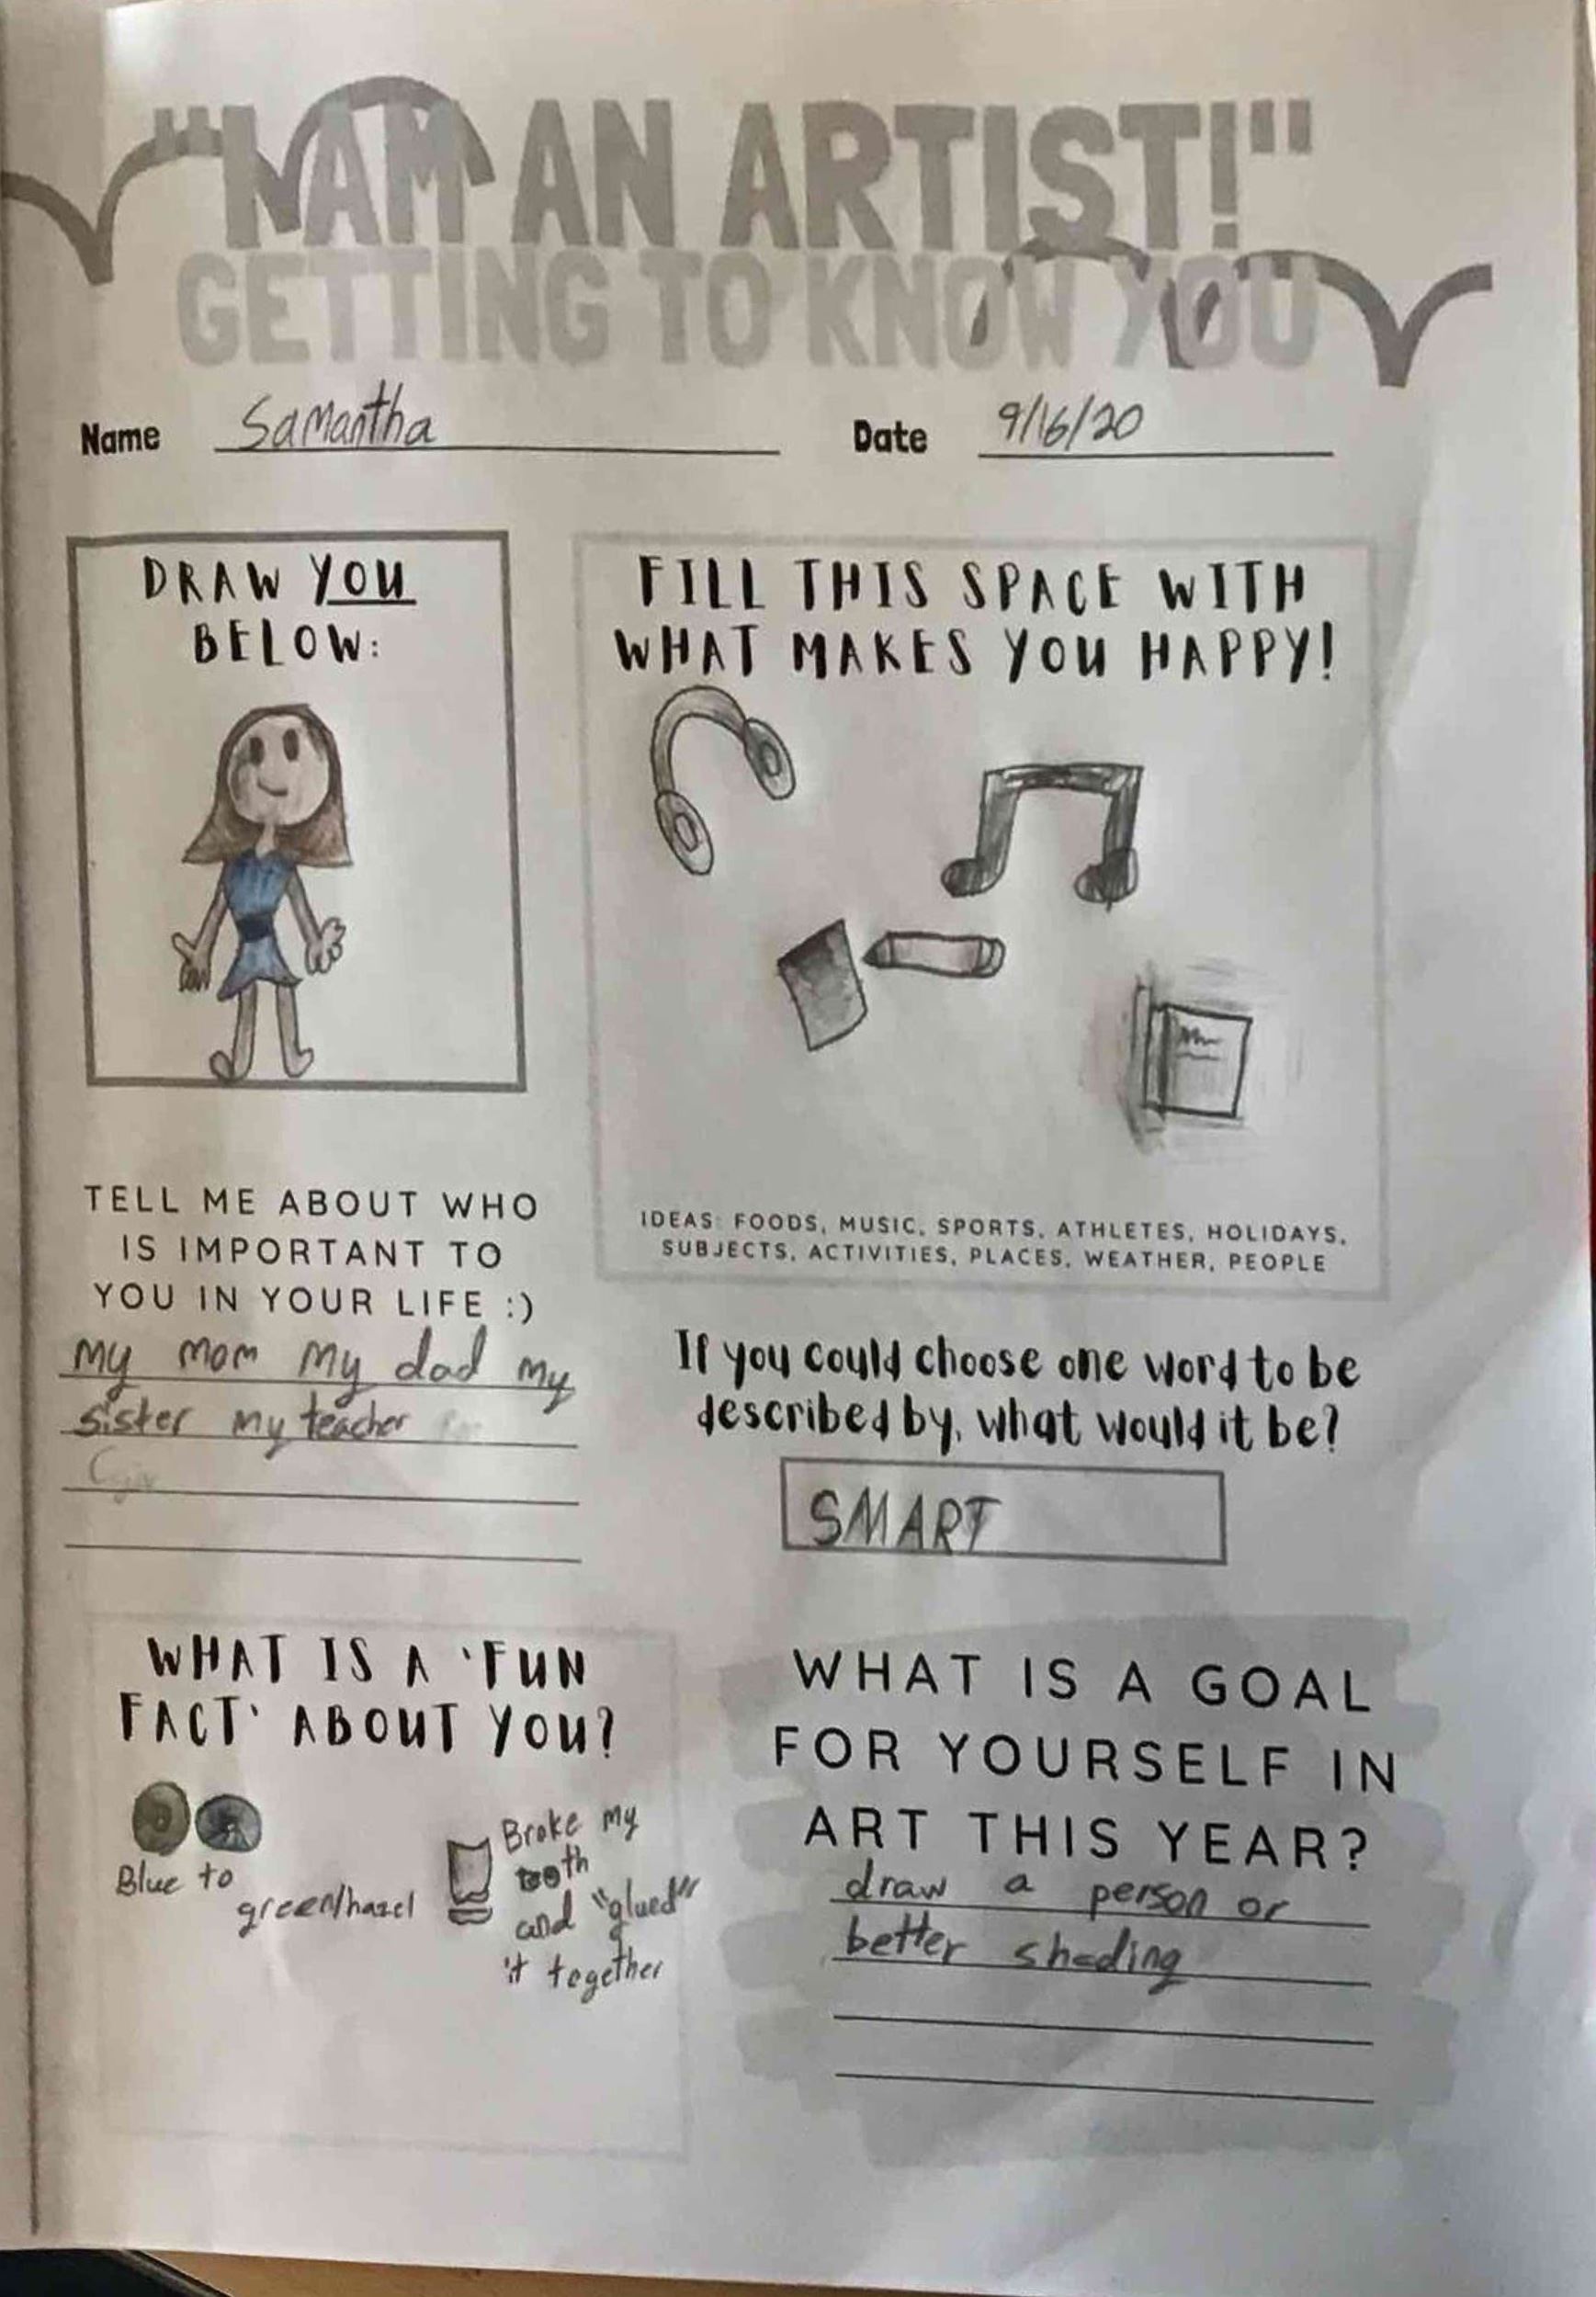 "I AM AN ARTIST!"
GETTING TO KNOW YOU
Name Samantha Date 9/16/20
DRAW YOU
BELOW:
FILL THIS SPACE WITH
WHAT MAKES YOU HAPPY!
IDEAS: FOODS, MUSIC, SPORTS, ATHLETES, HOLIDAYS,
SUBJECTS, ACTIVITIES, PLACES, WEATHER, PEOPLE
TELL ME ABOUT WHO
IS IMPORTANT TO
YOU IN YOUR LIFE :)
my mom my dad my
sister my teacher
If you could choose one word to be
described by, what would it be?
SMART
WHAT IS A 'FUN
FACT' ABOUT YOU?
Blue to
green/hazel
Broke my
tooth
and "glued"
it together
WHAT IS A GOAL
FOR YOURSELF IN
ART THIS YEAR?
draw a person or
better shading